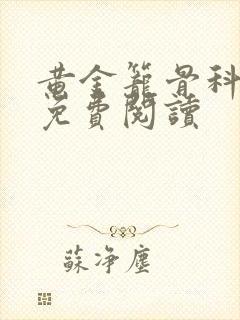 黃金籠骨科
免費閱讀
蘇淨塵